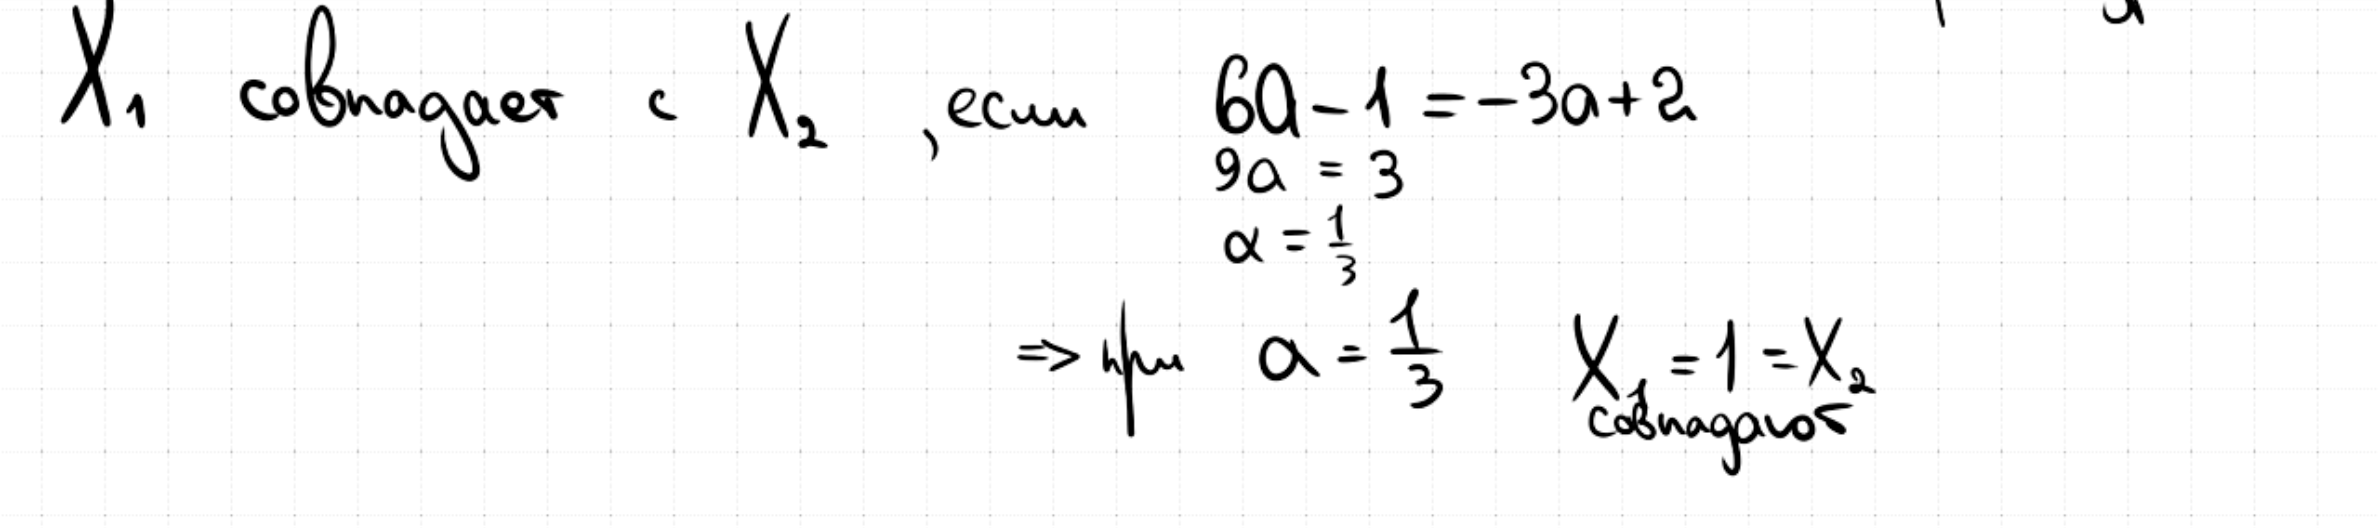 X₁ совпадает с X₂, если 6a - 1 = -3a + 2
9a = 3
a = 1/3
=> при a = 1/3 X₁ = 1 = X₂
совпадают